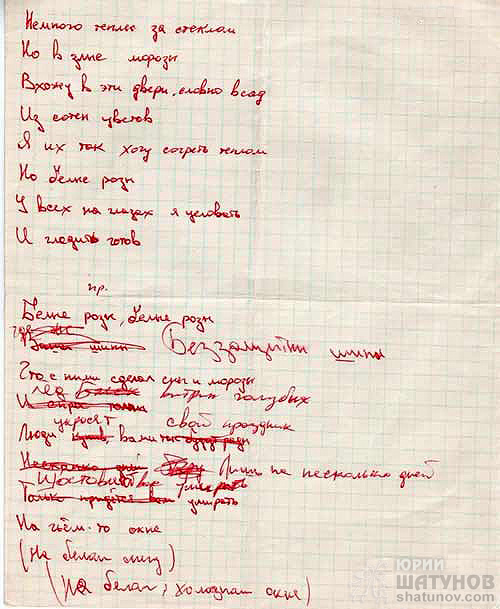 Немного теплы за стеклом
Но в злые морозы
Вхожу в эти двери, словно в сад
Из сотен цветов
Я их так хочу согреть теплом
Но белые розы
У всех на глазах я целовать
И гладить готов
пр.
Белые розы, белые розы
Ваши шипы Беззащитны шипы
Что с ними сделал снег и морозы
лёд витрин голубых
И спрос толпы
украсят свой праздник
Люди вами так будут рады
Несколько дней Лишь на несколько дней
И оставят вас умирать
Только придется вам умирать
На чьём-то окне
(На белом снегу)
(На белом, холодном окне)
ЮРИЙ
ШАТУНОВ
shatunov.com